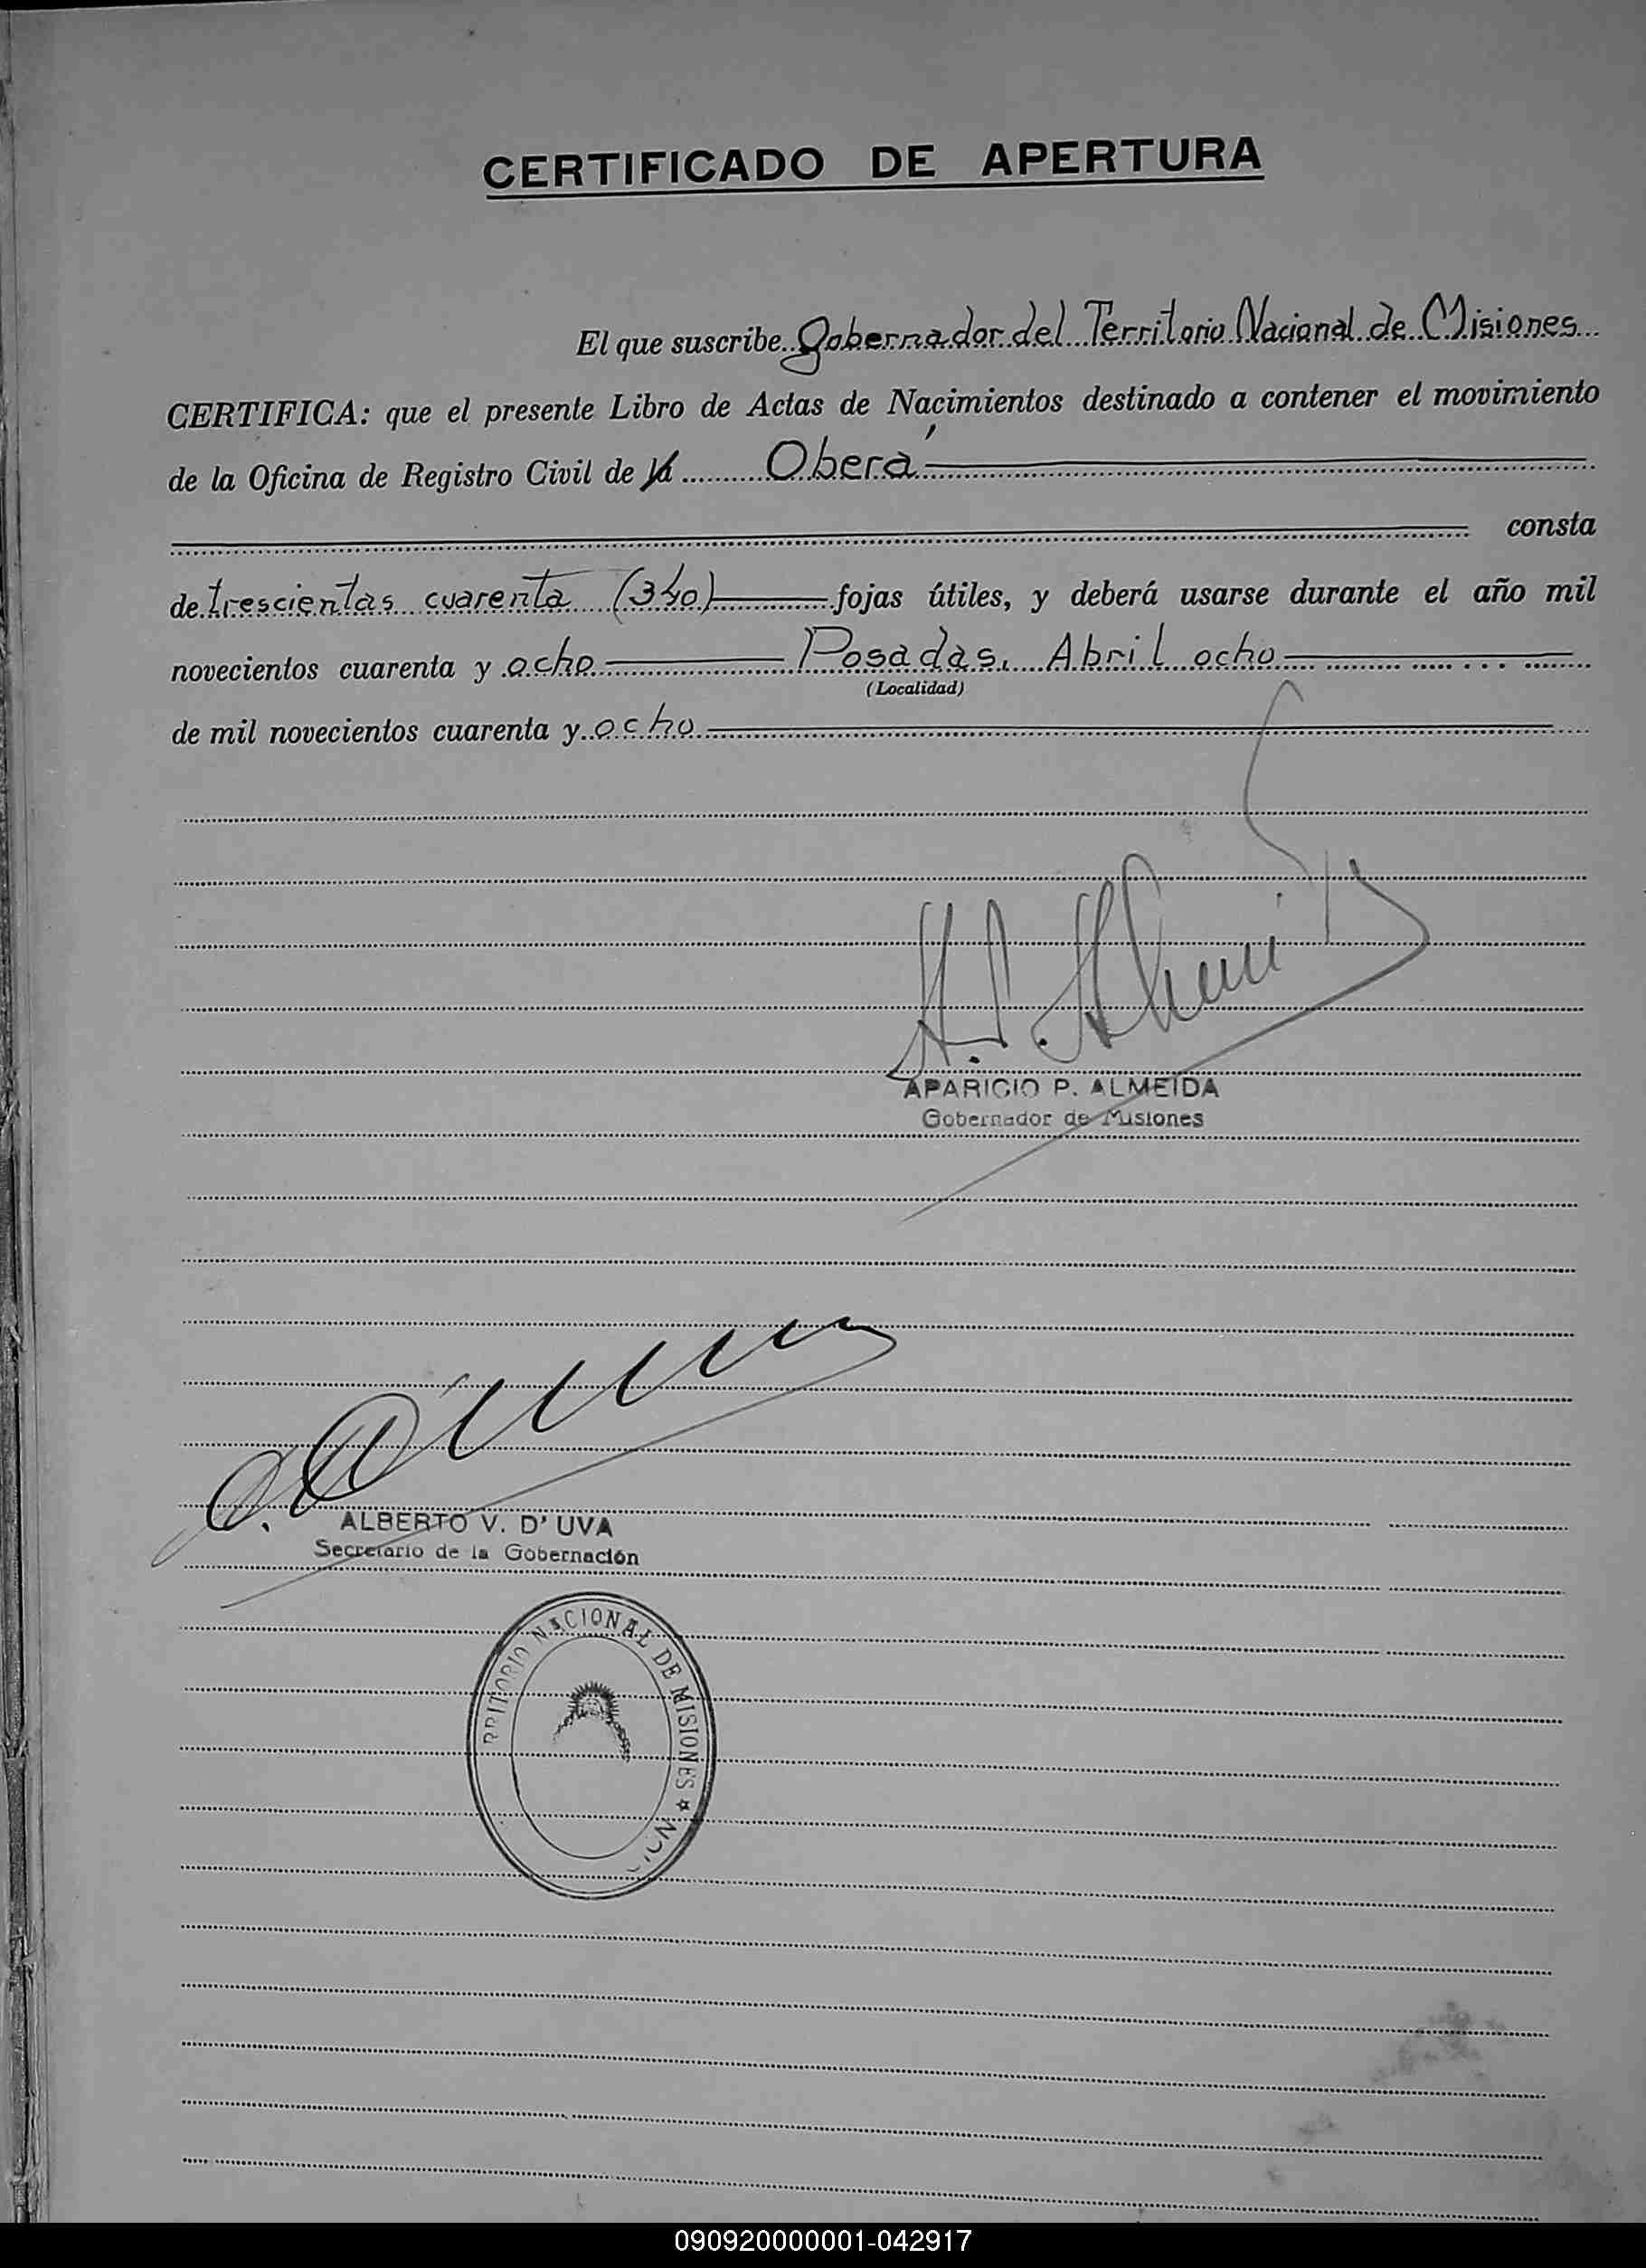 CERTIFICADO DE APERTURA
El que suscribe Gobernador del Territorio Nacional de Misiones
CERTIFICA: que el presente Libro de Actas de Nacimientos destinado a contener el movimiento
de la Oficina de Registro Civil de la Oberá
consta
de trescientas cuarenta (340) fojas útiles, y deberá usarse durante el año mil
novecientos cuarenta y ocho Posadas, Abril ocho
(Localidad)
de mil novecientos cuarenta y ocho
APARICIO P. ALMEIDA
Gobernador de Misiones
ALBERTO V. D'UVA
Secretario de la Gobernación
RRITORIO NACIONAL DE MISIONES
090920000001-042917